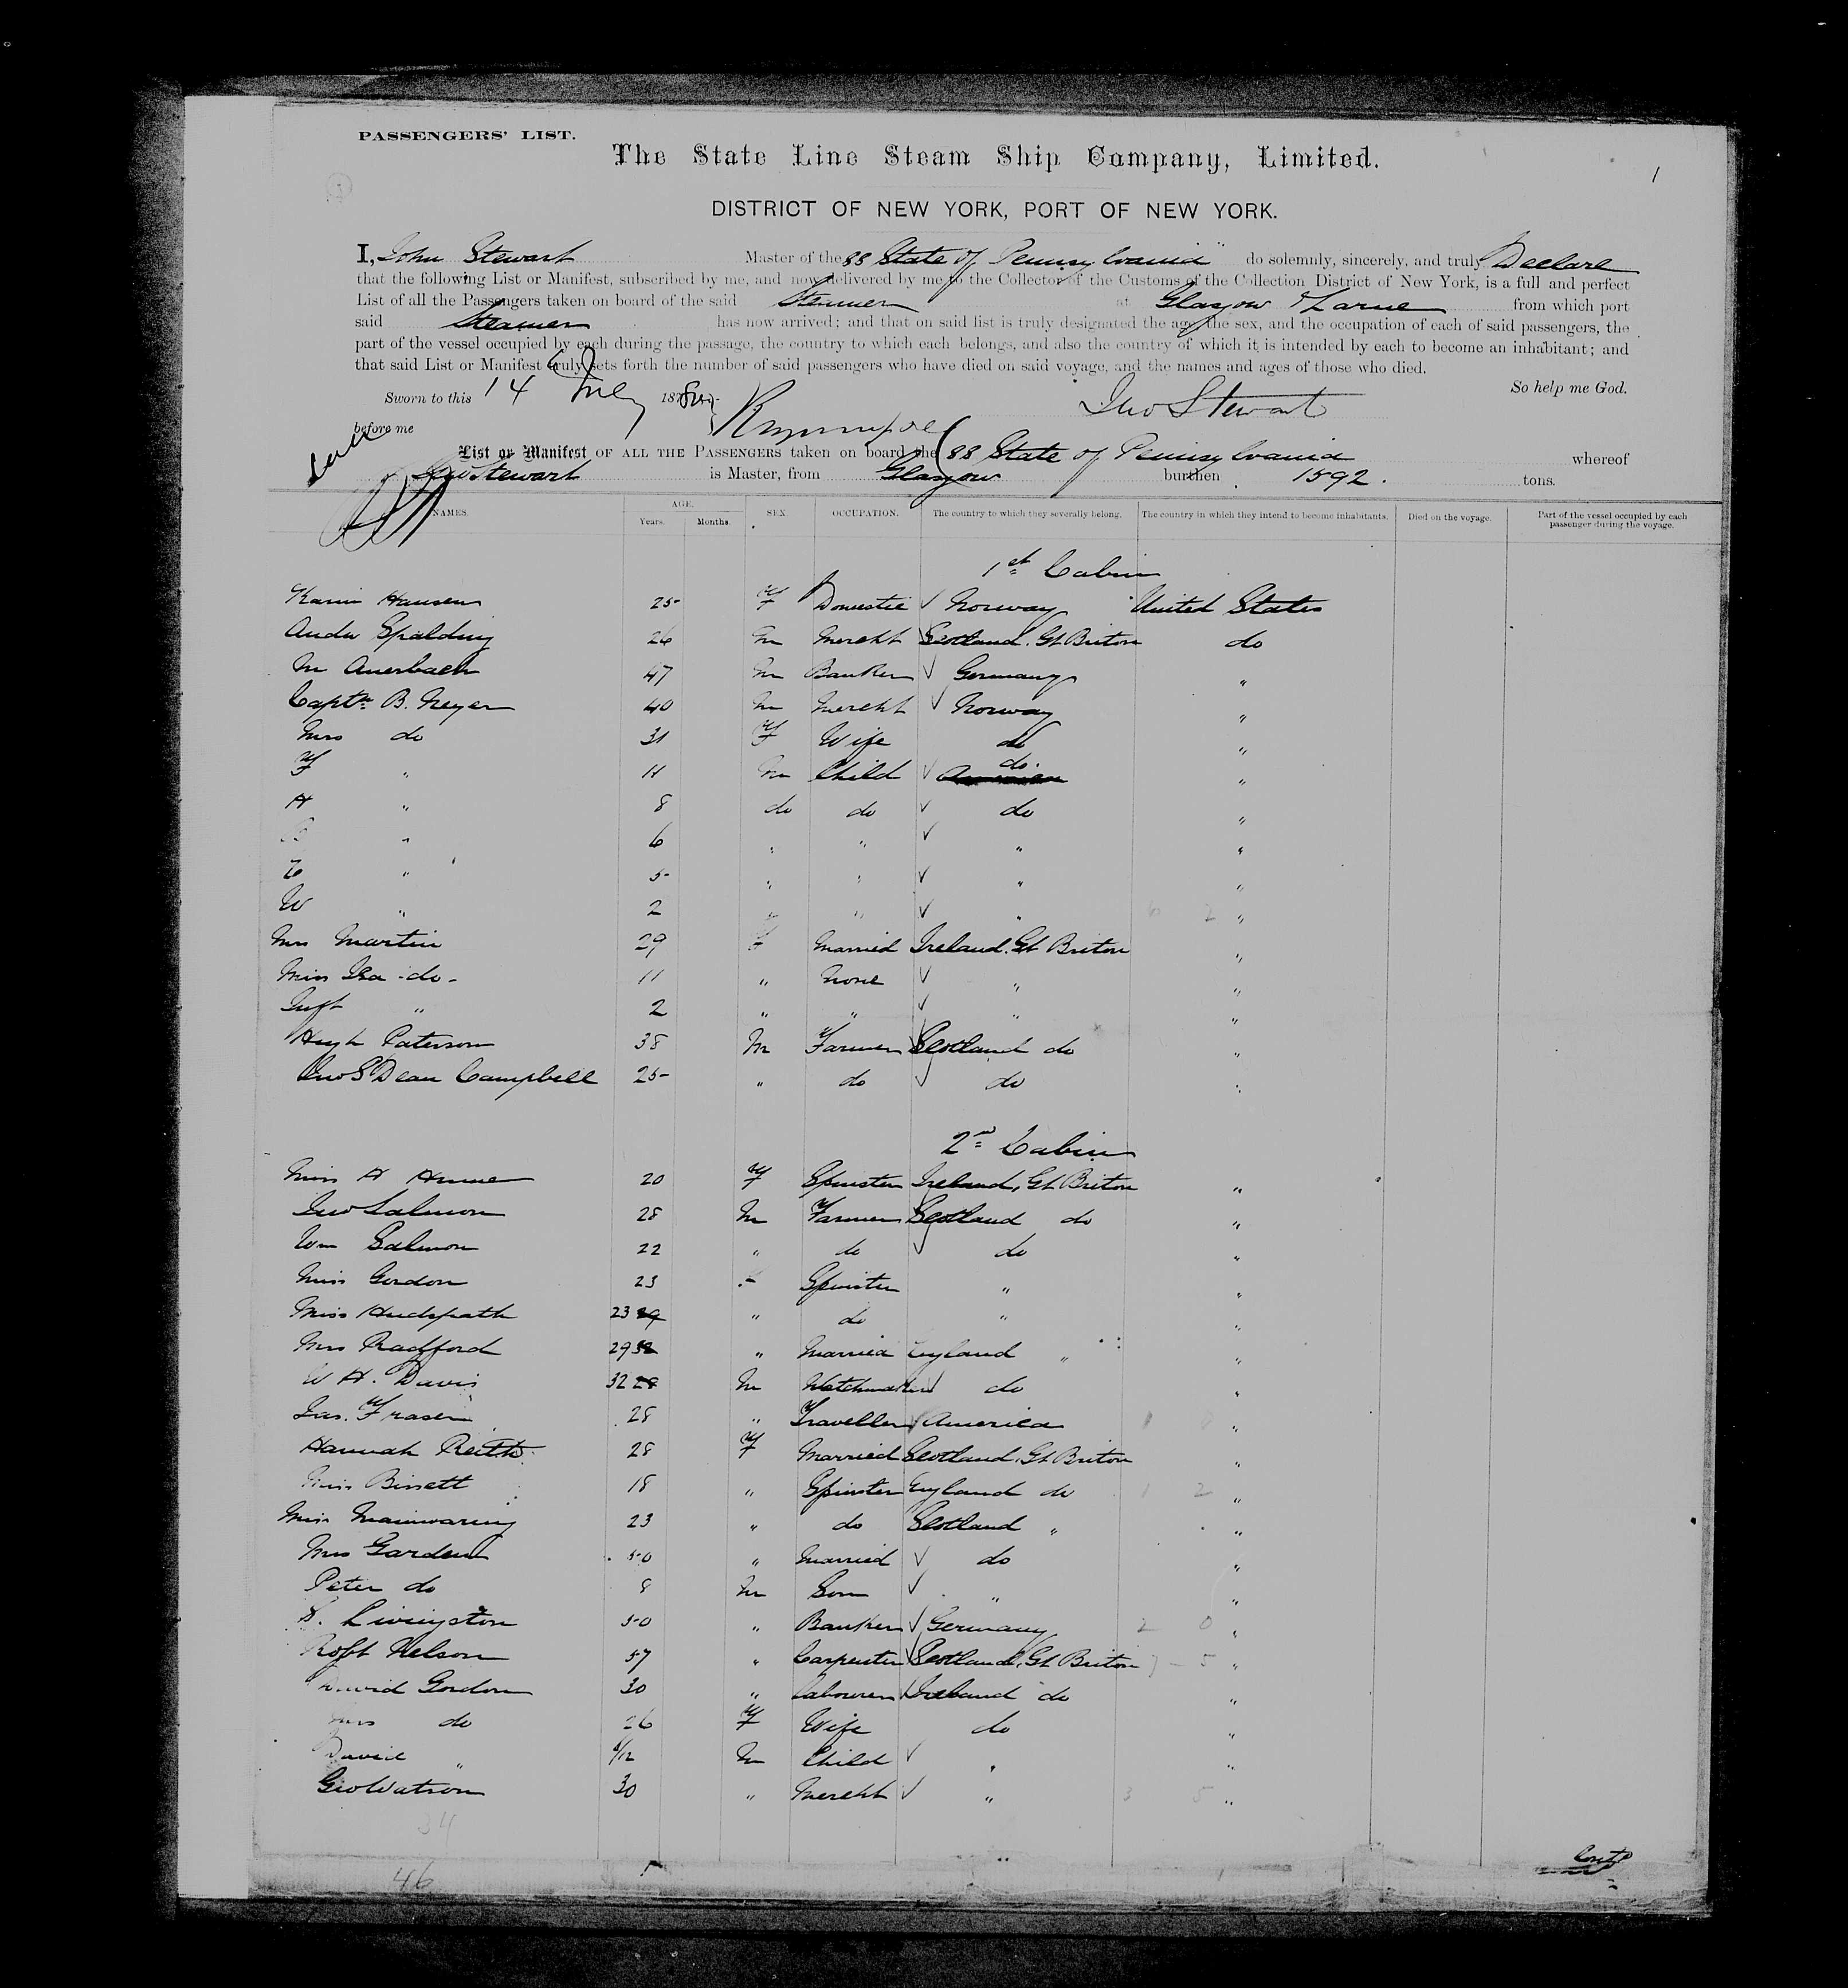 PASSENGERS' LIST.
1
The State Line Steam Ship Company, Limited.
DISTRICT OF NEW YORK, PORT OF NEW YORK.
I, John Stewart Master of the SS State of Pennsylvania do solemnly, sincerely, and truly Declare
that the following List or Manifest, subscribed by me, and now delivered by me to the Collector of the Customs of the Collection District of New York, is a full and perfect
List of all the Passengers taken on board of the said Steamer at Glasgow & Larne from which port
said Steamer has now arrived; and that on said list is truly designated the age, the sex, and the occupation of each of said passengers, the
part of the vessel occupied by each during the passage, the country to which each belongs, and also the country of which it is intended by each to become an inhabitant; and
that said List or Manifest truly sets forth the number of said passengers who have died on said voyage, and the names and ages of those who died.
So help me God.
Sworn to this 14 July 187
Jno Stewart
before me
List or Manifest OF ALL THE PASSENGERS taken on board the SS State of Pennsylvania whereof
Jno Stewart is Master, from Glasgow burthen 1592. tons.
NAMES. AGE. Years. Months. SEX. OCCUPATION. The country to which they severally belong. The country in which they intend to become inhabitants. Died on the voyage. Part of the vessel occupied by each passenger during the voyage.
1st Cabin
Hansen 25 F Domestic Norway United States
Andw Spalding 26 M Mercht Scotland. Gt Briton do
M Auerbach 47 M Banker Germany "
Captn B. Meyer 40 M Mercht Norway "
Mrs do 31 F Wife do "
F " 11 M Child do. "
H " 8 do do do "
" 6 " " " "
" 5 " " " "
W " 2 " " " "
Mrs Martin 29 F Married Ireland. Gt Briton "
Miss Isa -do- 11 " None " "
Inft " 2 " " " "
Hugh Paterson 38 M Farmer Scotland do "
Jno S Dean Campbell 25 " do do "
2nd Cabin
Miss H Hume 20 F Spinster Ireland, Gt Briton "
Jno Salmon 28 M Farmer Scotland do "
Wm Salmon 22 " do do "
Miss Gordon 23 F Spinster " "
Miss Hudspath 23 " do " "
Mrs Radford 29 " Married England " "
W H. Davis 32 M Watchmaker do "
Jas. Fraser 28 " Traveller America "
Hannah Reith 28 F Married Scotland, Gt Briton "
Miss Bissett 18 " Spinster England do "
Miss Mainwaring 23 " do Scotland " "
Mrs Garden 50 " Married do "
Peter do 8 M Son " "
S. Livingston 50 " Banker Germany "
Robt Nelson 57 " Carpenter Scotland, Gt Briton "
David Gordon 30 " Labourer Ireland do "
Mrs do 26 F Wife do "
David " M Child " "
Geo Watson 30 " Mercht " "
34
46
Contd